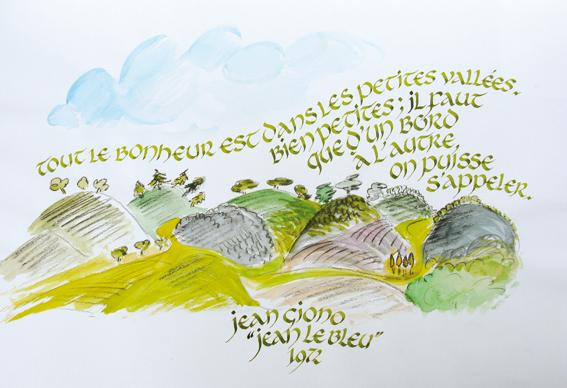 Tout le bonheur est dans les petites vallées.
Bien petites ; il faut
que d'un bord
à l'autre
on puisse
s'appeler.
jean giono
"jean le bleu"
1972